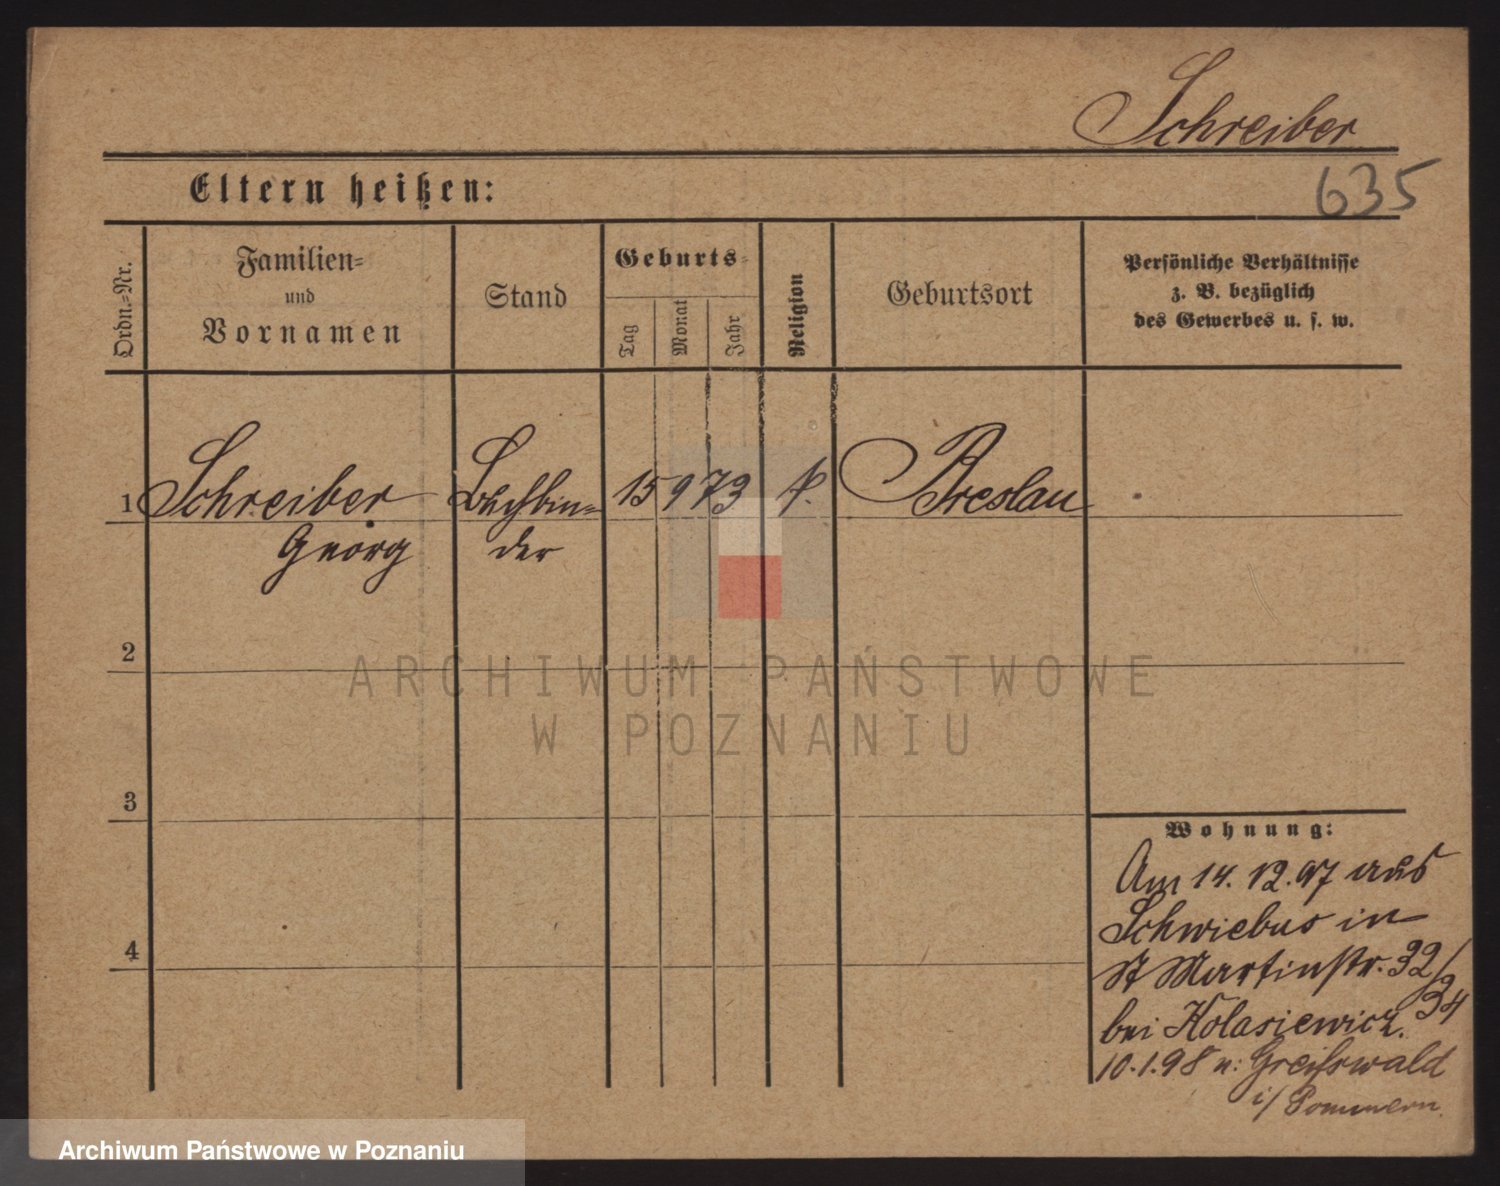 Schreiber
Eltern heißen:
635
Ordn.=Nr.
Familien=
und
Vornamen
Stand
Geburts=
Tag
Monat
Jahr
Religion
Geburtsort
Persönliche Verhältnisse
z. B. bezüglich
des Gewerbes u. s. w.
1
Schreiber
Georg
Buchbin=
der
15 9 73
k.
Breslau
2
3
4
Wohnung:
Am 14. 12. 97 aus
Schwiebus in
St Martinstr. 32/
34
bei Kolasiewicz.
10.1.98 n: Greifswald
i/ Pommern.
ARCHIWUM PAŃSTWOWE
W POZNANIU
Archiwum Państwowe w Poznaniu